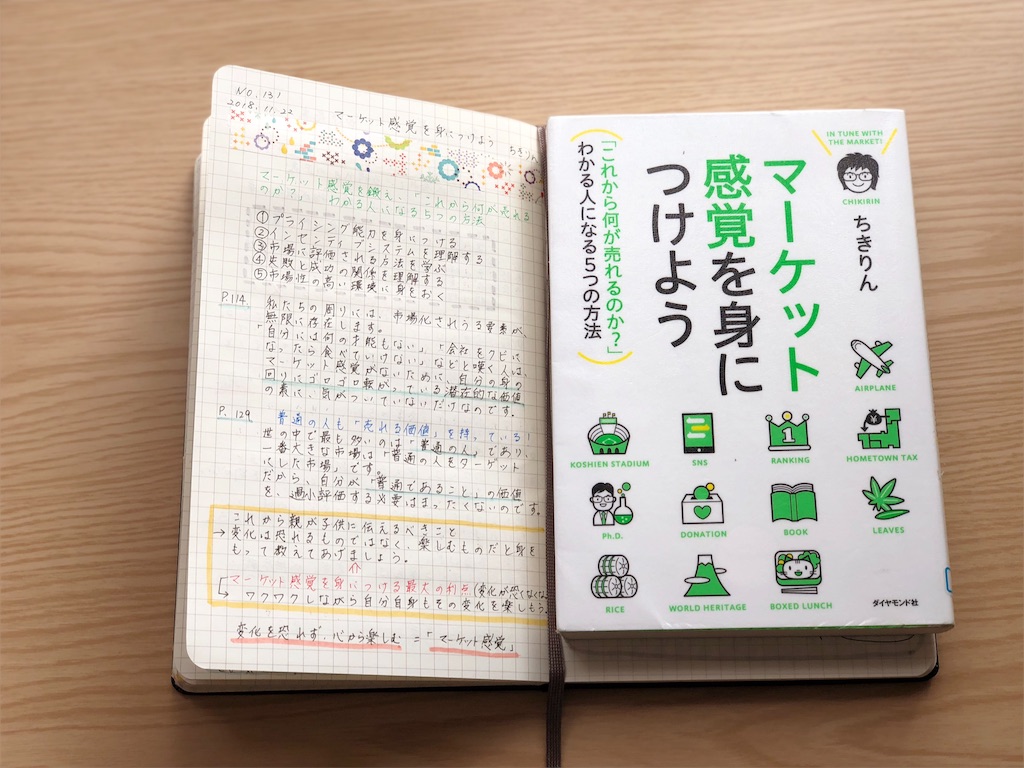 NO.131
2018.11.22
マーケット感覚を身につけよう ちきりん
マーケット感覚を鍛え、「これから何が売れる
のか?」わかる人になる5つの方法
①プライシング能力を身につける
②インセンティブシステムを理解する
③市場に評価される方法を学ぶ
④失敗と成功の関係を理解する
⑤市場性の高い環境に身をおく
P.114
私たちの周りには、市場化されうる要素が、
無限に存在します。
「自分には何の才能もない」「会社をクビに
なったら食べていけない」などと嘆く人は、
マーケット感覚がないために、自分の身の
回りにゴロゴロ転がっている潜在的な価値
の素に、気がついていないだけなのです。
P.129
普通の人も「売れる価値」を持っている!
世の中で最も多いのは「普通の人」であり、
一番大きな市場は「普通の人をターゲット
にした市場」です。
だから、自分が「普通であること」の価値
を、過小評価する必要はまったくないのです。
これから親が子供に伝えるべきこと
→変化は恐れるものではなく、楽しむものだと身を
もって教えてあげましょう。
マーケット感覚を身につける最大の利点(変化が恐くなくな
→ワクワクしながら自分自身もその変化を楽しもう。
変化を恐れず、心から楽しむ=「マーケット感覚」
IN TUNE WITH
THE MARKET!
CHIKIRIN
ちきりん
マーケット
感覚を身に
つけよう
「これから何が売れるのか?」
わかる人になる5つの方法
AIRPLANE
KOSHIEN STADIUM
SNS
1
RANKING
¥
HOMETOWN TAX
Ph.D.
DONATION
BOOK
LEAVES
RICE
WORLD HERITAGE
BOXED LUNCH
ダイヤモンド社